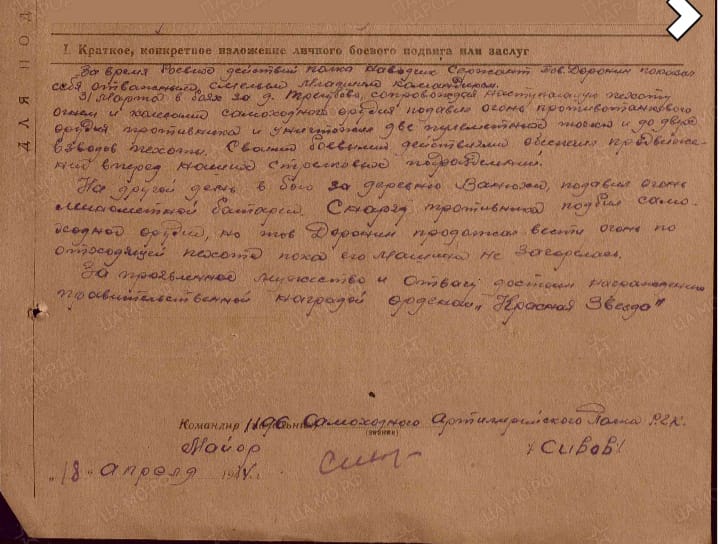 I. Краткое, конкретное изложение личного боевого подвига или заслуг
За время боевых действий полка наводчик Сержант тов. Доронин показал
себя отважным, смелым младшим командиром.
31 марта в боях за д. сопровождая наступающую пехоту
огнем и колесами самоходного орудия подавил огонь противотанкового
орудия противника и уничтожил две пулеметные точки и до двух
взводов пехоты. Своими боевыми действиями обеспечил продвиже-
ний вперед наших стрелковых подразделений.
На другой день в бою за деревню подавил огонь
минометной батареи. Снаряд противника подбил само-
ходное орудие, но тов Доронин продолжал вести огонь по
отходящей пехоте пока его машина не загорелась.
За проявленное мужество и отвагу достоин награждения
правительственной наградой орденом „Красная Звезда"
Командир 1196 Самоходного Артиллерийского Полка Р.Г.К.
(звание)
Майор /Сивов/
„18" апреля 1944 г.
ДЛЯ ПОД